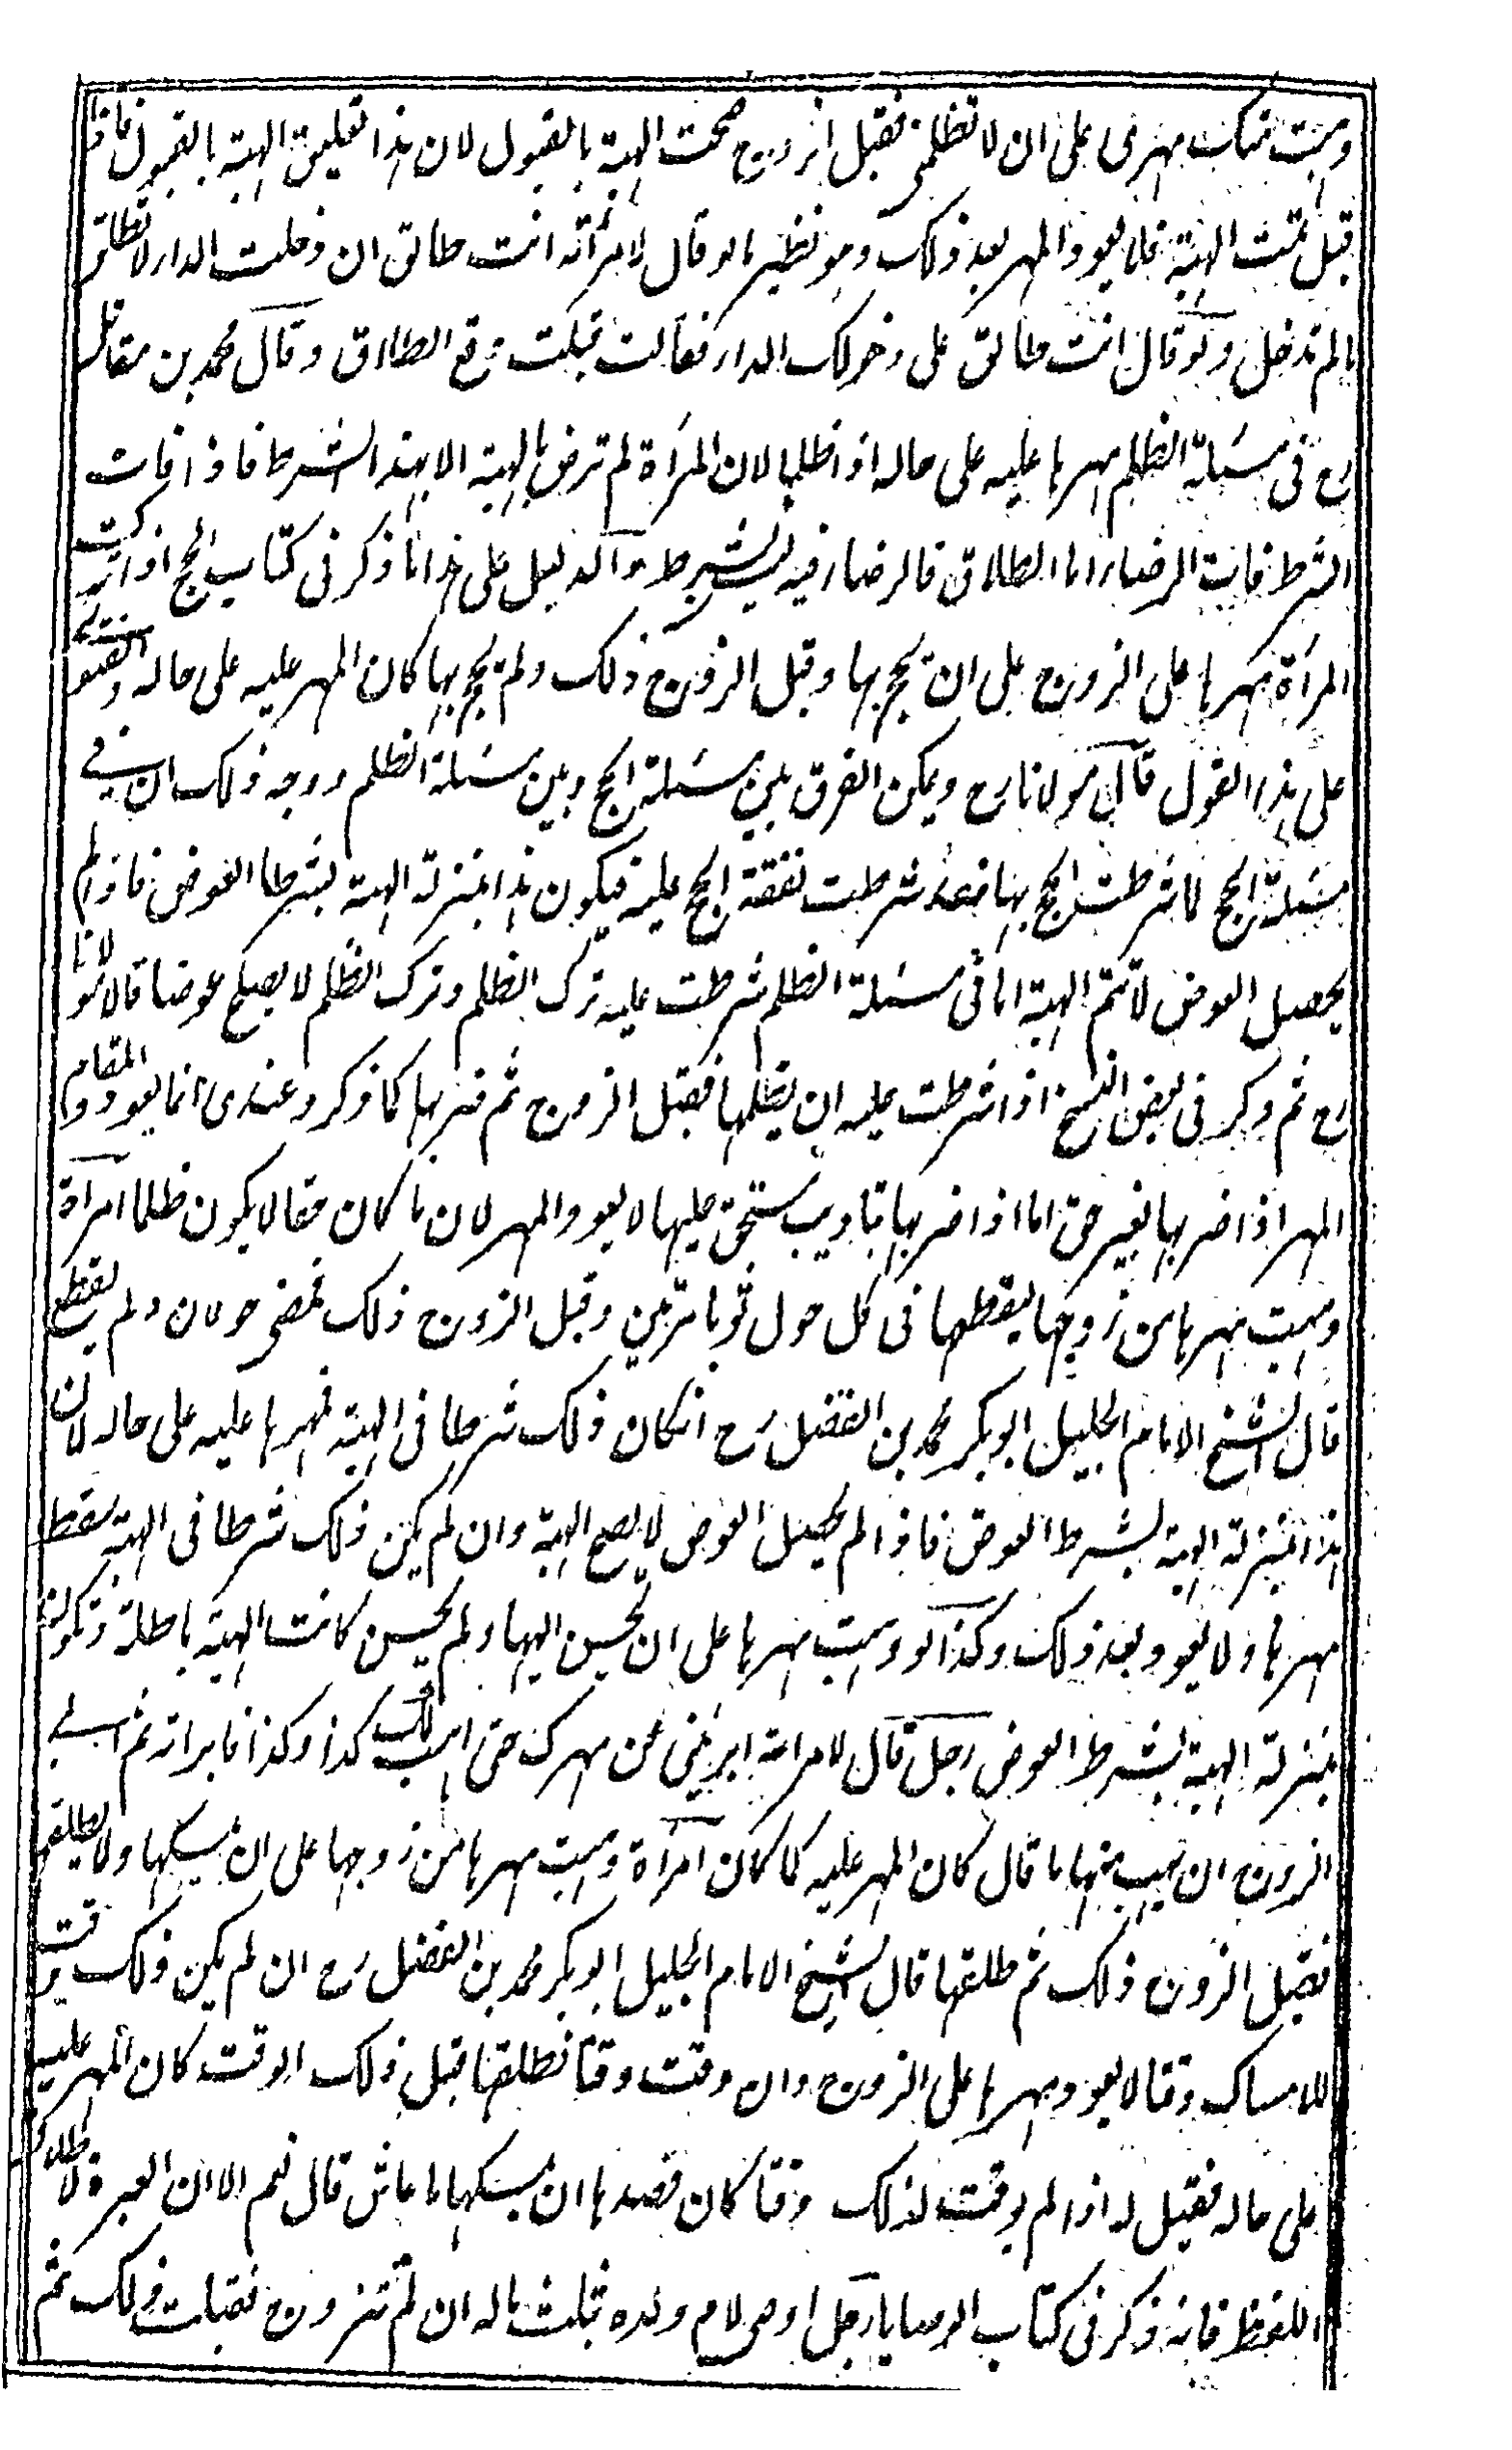 وهبت منك مهرى على ان لا تظلمنى فقبل الزوج صحت الهبة بالقبول لان هذا تعليق الهبة بالقبول فاذا
قبل تمت الهبة فلا يعود المهر بعد ذلك وهو نظير ما لو قال لامرأته انت طالق ان دخلت الدار لا تطلق
ما لم تدخل ولو قال انت طالق على دخولك الدار فقالت قبلت وقع الطلاق وقال محمد بن مقاتل
رح فى مسئلة الظلم مهرها عليه على حاله اذا ظلمها لان المرأة لم ترض بالهبة الا بهذا الشرط فاذا فات
الشرط فات الرضا اما الطلاق فالرضا فيه ليس بشرط والدليل على هذا ما ذكر فى كتاب الحج اذا تركت
المرأة مهرها على الزوج على ان يحج بها وقبل الزوج ذلك ولم يحج بها كان المهر عليه على حاله والفتوى
على هذا القول قال مولانا رح ويمكن الفرق بين مسئلة الحج وبين مسئلة الظلم ووجه ذلك ان فى
مسئلة الحج لما شرطت الحج بها فقد شرطت نفقة الحج عليه فيكون هذا بمنزلة الهبة بشرط العوض فاذا لم
يحصل العوض لا تتم الهبة اما فى مسئلة الظلم شرطت عليه ترك الظلم وترك الظلم لا يصلح عوضا قال مولانا
رح ثم ذكر فى بعض النسخ اذا شرطت عليه ان لا يظلمها فقبل الزوج ثم ضربها كما ذكر وعندى انما يعود
المهر اذا ضربها بغير حق اما اذا ضربها بتاديب مستحق عليها لا يعود المهر لان ما كان حقا لا يكون ظلما امرأة
وهبت مهرها من زوجها ليقطعها فى كل حول ثوبا مرتين وقبل الزوج ذلك فمضى حولان ولم يقطع
قال الشيخ الامام الجليل ابو بكر محمد بن الفضل رح انكان ذلك شرطا فى الهبة فمهرها عليه على حاله لان
هذا بمنزلة الهبة بشرط العوض فاذا لم يحصل العوض لا يصح الهبة وان لم يكن ذلك شرطا فى الهبة سقط
مهرها ولا يعود بعد ذلك وكذا لو وهبت مهرها على ان يحسن اليها ولم يحسن كانت الهبة باطلة وتكون
بمنزلة الهبة بشرط العوض رجل قال لامرأته ابرئينى عن مهرك حتى اهب لك كذا وكذا فابرأته ثم ابى
الزوج ان يهب منها ما قال كان المهر عليه كما كان امرأة وهبت مهرها من زوجها على ان يمسكها ولا يطلقها
فقبل الزوج ذلك ثم طلقها قال الشيخ الامام الجليل ابو بكر محمد بن الفضل رح ان لم يكن ذلك وقت
للامساك وقتا لا يعود مهرها على الزوج وان وقت وقتا فطلقها قبل ذلك الوقت كان المهر عليه
على حاله فقيل له اذا لم يوقت لذلك وقتا كان قصدها ان يمسكها ما عاش قال نعم الا ان العبرة لاطلاق
اللفظ فانه ذكر فى كتاب الوصايا رجل اوصى لام ولده بثلث ماله ان لم تتزوج فقبلت ذلك ثم